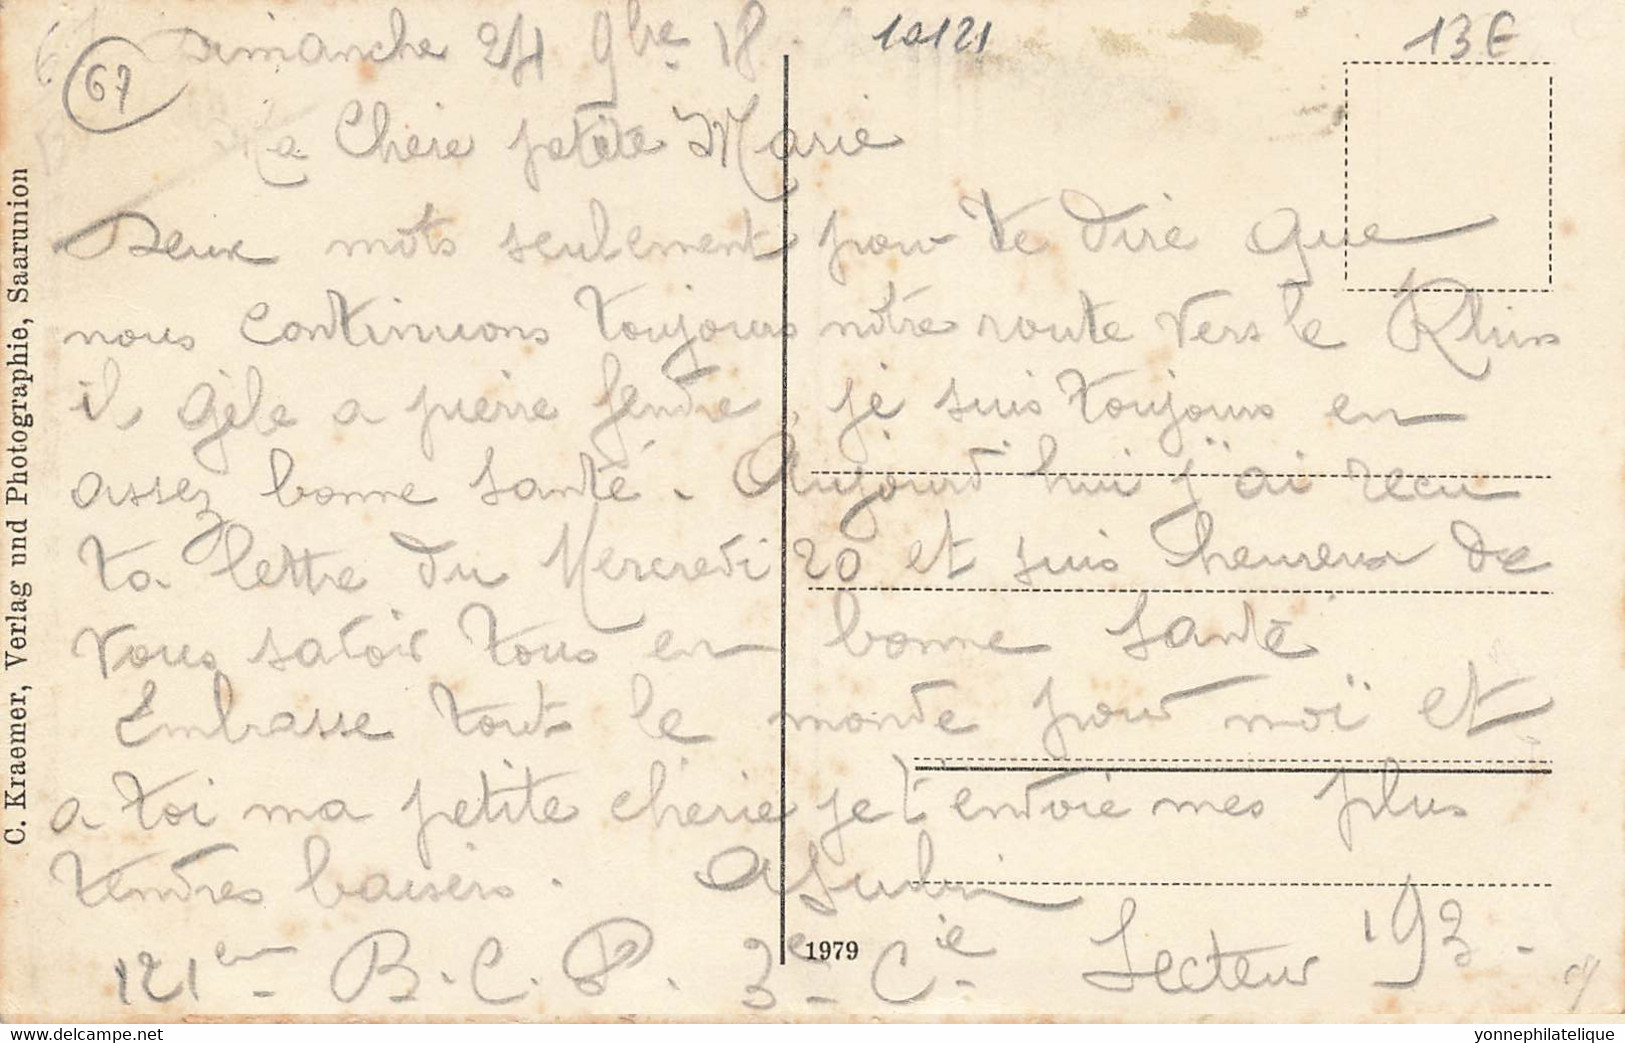 67
Dimanche 24 9bre 18
10121
13 €
Ma Chère petite Marie
Deux mots seulement pour te dire que
nous continuons toujours nôtre route vers le Rhin
il gèle a pierre fendre, je suis toujours en
assez bonne santé. Aujourd'hui j'ai recu
ta lettre du Mercredi 20 et suis heureux de
vous savoir tous en bonne santé
Embrasse tout le monde pour moi et
a toi ma petite chérie je t'envoie mes plus
tendres baisers.
121em B.C.P. 3e Cie Secteur 193.
1979
C. Kraemer, Verlag und Photographie, Saarunion
delcampe.net
yonnephilatelique